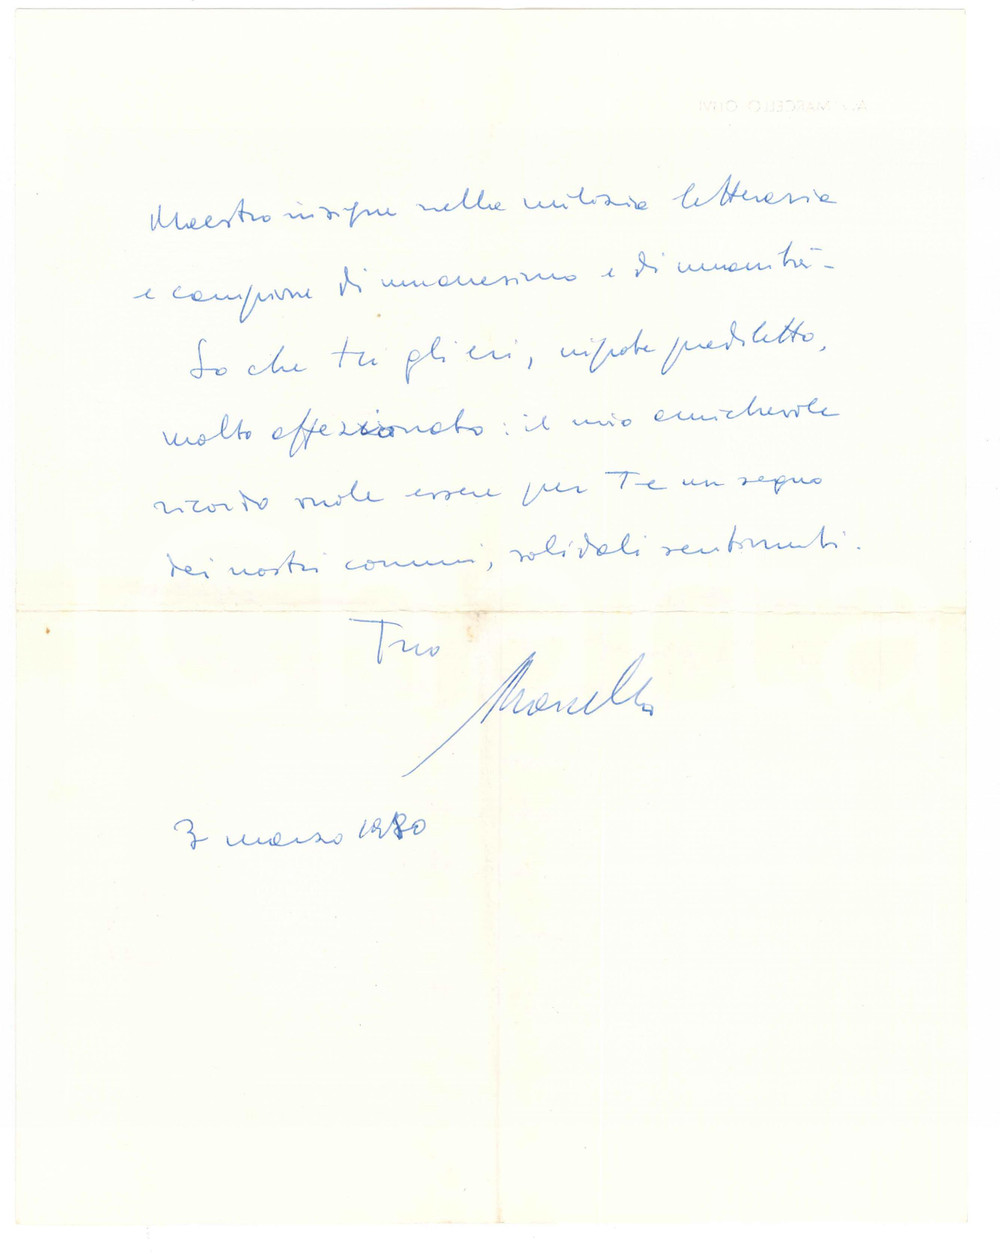 Maestro insigne nella milizia letteraria
e campione di umanesimo e di umanità -
So che tu gli eri, nipote prediletto,
molto affezionato: il mio amichevole
ricordo vuole essere per Te un segno
dei nostri comuni, solidali sentimenti.
Tuo
Marcello
3 marzo 1980